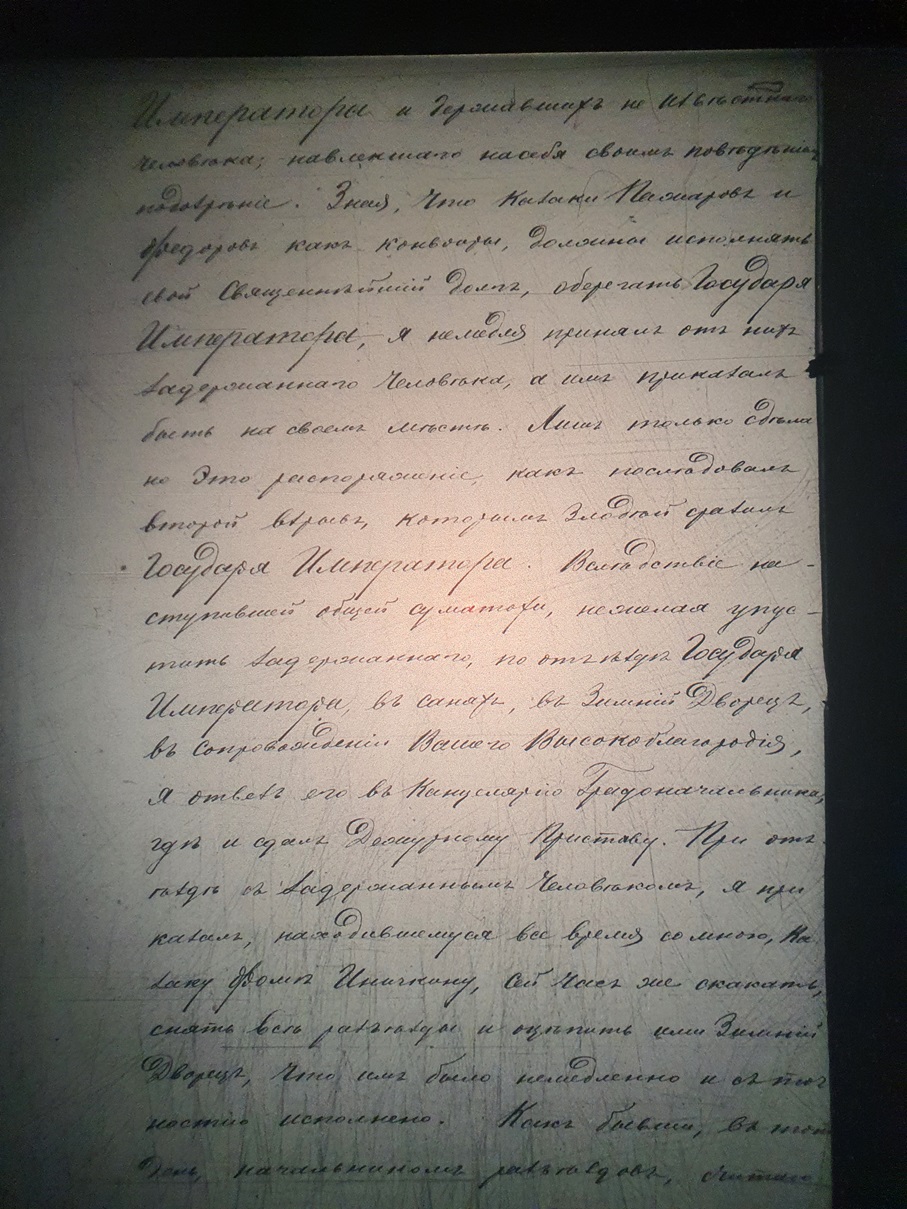 Императоры и державшихъ не извѣстнаго
человѣка, навлекшаго насебя своимъ поведѣніемъ
подозрѣніе. Зная, что Казаки и
Федоровъ какъ конвойры, должны исполнять
свой Священнѣйшій долгъ, оберегать Государя
Императора, я немедля принялъ отъ нихъ
задержаннаго человѣка, а имъ приказалъ
быть на своемъ мѣстѣ. Лишъ только сдѣла
но это распоряженіе, какъ послѣдовалъ
второй взрывъ, которымъ Злодѣй сразилъ
Государя Императора. Вслѣдствіе на-
ступившей общей суматохи, нежелая упус-
тить задержаннаго, по отъѣздѣ Государя
Императора, въ санахъ, въ Зимній Дворецъ,
въ сопровожденіи Вашего Высокоблагородія,
я отвезъ его въ Канцелярію Градоначальника,
гдѣ и сдалъ Дежурному Приставу. При отъ-
ѣздѣ съ задержаннымъ Человѣкомъ, я при
казалъ, находившемуся все время со мною, Ка
заку Фомѣ Иничкину, сей часъ же скакать,
снять всѣ разъѣзды и оцѣпить ими Зимній
Дворецъ, что имъ было немедленно и съ точ
ностію исполнено. Какъ бывши, въ тотъ
день, начальникомъ разъѣздовъ, считаю